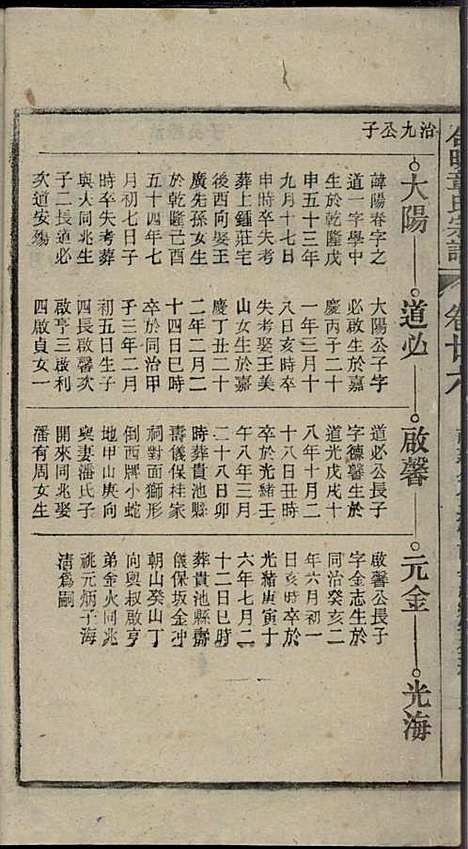 治九公子
大陽
道必
啟馨
元金
光海
諱陽春字之
道一字學中
生於乾隆戊
申五十三年
九月十七日
申時卒失考
葬上鍾莊宅
後西向娶王
廣先孫女生
於乾隆己酉
五十四年七
月初七日子
時卒失考葬
與大同兆生
子二長道必
次道安殤
大陽公子字
必啟生於嘉
慶丙子二十
一年三月十
八日亥時卒
失考娶王美
山女生於嘉
慶丁丑二十
二年二月二
十四日巳時
卒於同治甲
子三年二月
初五日生子
四長啟馨次
啟亨三啟利
四啟貞女一
道必公長子
字德馨生於
道光戊戌十
八年十月二
十八日丑時
卒於光緒壬
午八年三月
二十八日卯
時葬貴池縣
壽儀保桂家
祠對面獅形
倒西牌小蛇
地甲山庚向
與妻潘氏子
開來同兆娶
潘有周女生
啟馨公長子
字金志生於
同治癸亥二
年六月初一
日亥時卒於
光緒庚寅十
六年七月二
十二日巳時
葬貴池縣壽
儀保坂金冲
朝山癸山丁
向與叔啟亨
弟金火同兆
祧元炳子海
清為嗣
章氏宗譜
卷廿六